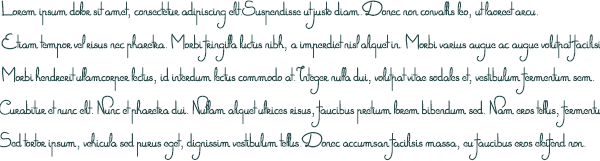 Lorem ipsum dolor sit amet, consectetur adipiscing elit. Suspendisse ut justo diam. Donec non convallis leo, ut laoreet arcu.
Etiam tempor vel risus nec pharetra. Morbi fringilla luctus nibh, a imperdiet nisl aliquet in. Morbi varius augue ac augue volutpat facilisi
Morbi hendrerit ullamcorper lectus, id interdum lectus commodo at. Integer nulla dui, volutpat vitae sodales et, vestibulum fermentum sem.
Curabitur et nunc elit. Nunc et pharetra dui. Nullam aliquet ultrices risus, faucibus pretium lorem bibendum sed. Nam eros tellus, fermentu
Sed tortor ipsum, vehicula sed purus eget, dignissim vestibulum tellus. Donec accumsan facilisis massa, eu faucibus eros eleifend non.